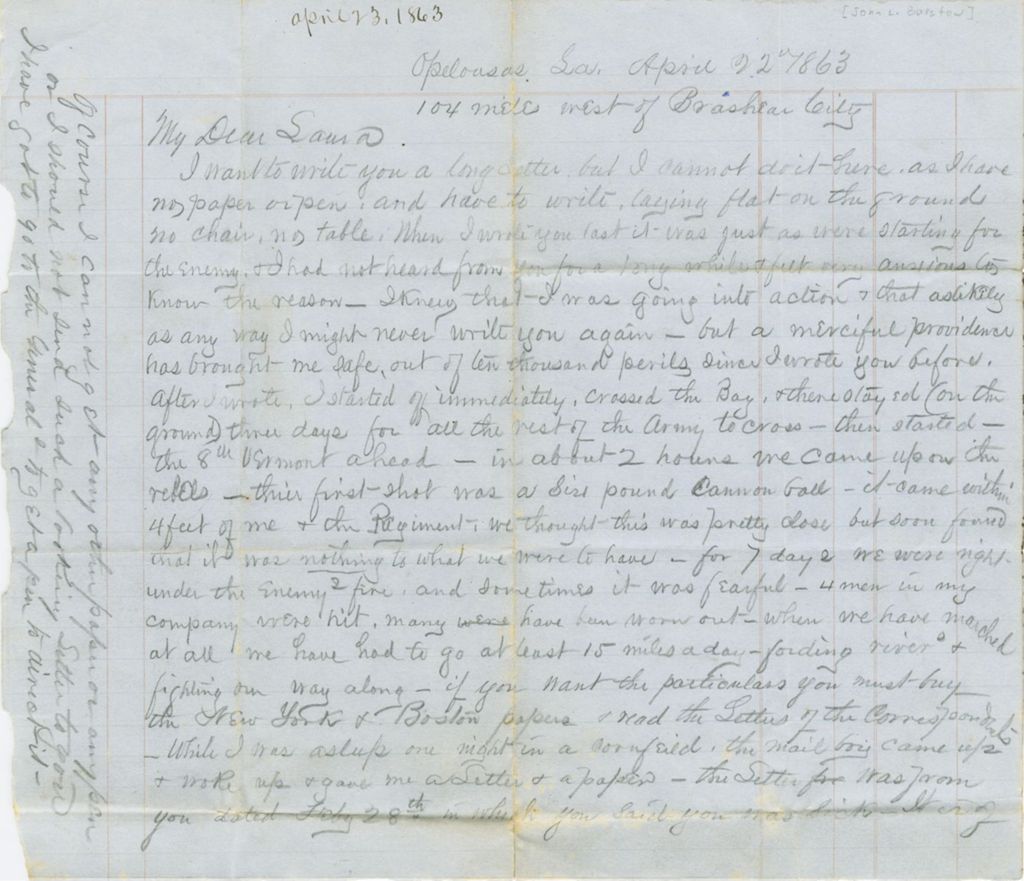 april 23, 1863
[John L. Barstow]
Opelousas, La. April 22" 1863
104 miles west of Brashear City
My Dear Laura
I want to write you a long letter but I cannot do it here, as I have
no paper or pen, and have to write, laying flat on the ground
no chair, no table. When I wrote you last it was just as were starting for
the enemy, & I had not heard from you for a long while & felt very anxious to
know the reason — I knew that I was going into action & that as likely
as any way I might never write you again — but a merciful providence
has brought me safe, out of ten thousand perils since I wrote you before.
After I wrote, I started off immediately, crossed the Bay, & there stayed (on the
ground) three days for all the rest of the Army to cross — then started —
the 8th Vermont ahead — in about 2 hours we came upon the
rebels — thier first shot was a six pound cannon ball — it came within
4 feet of me & the Regiment, we thought this was pretty close but soon found
that it was nothing to what we were to have — for 7 days we were right
under the enemy's fire, and sometimes it was fearful — 4 men in my
company were hit, many were have been worn out — when we have marched
at all we have had to go at least 15 miles a day — fording rivers &
fighting our way along — if you want the particulars you must buy
the New York & Boston papers & read the letters of the Correspondents
— While I was asleep one night in a cornfeild, the mail boy came up
& woke up & gave me a letter & a paper — the letter was from
you dated Feby 28th in which you said you was sick —
Of course I can not get any other paper or any pen
or I should not send such a looking letter to you
I have got to go to the General's to get a pen to direct it —